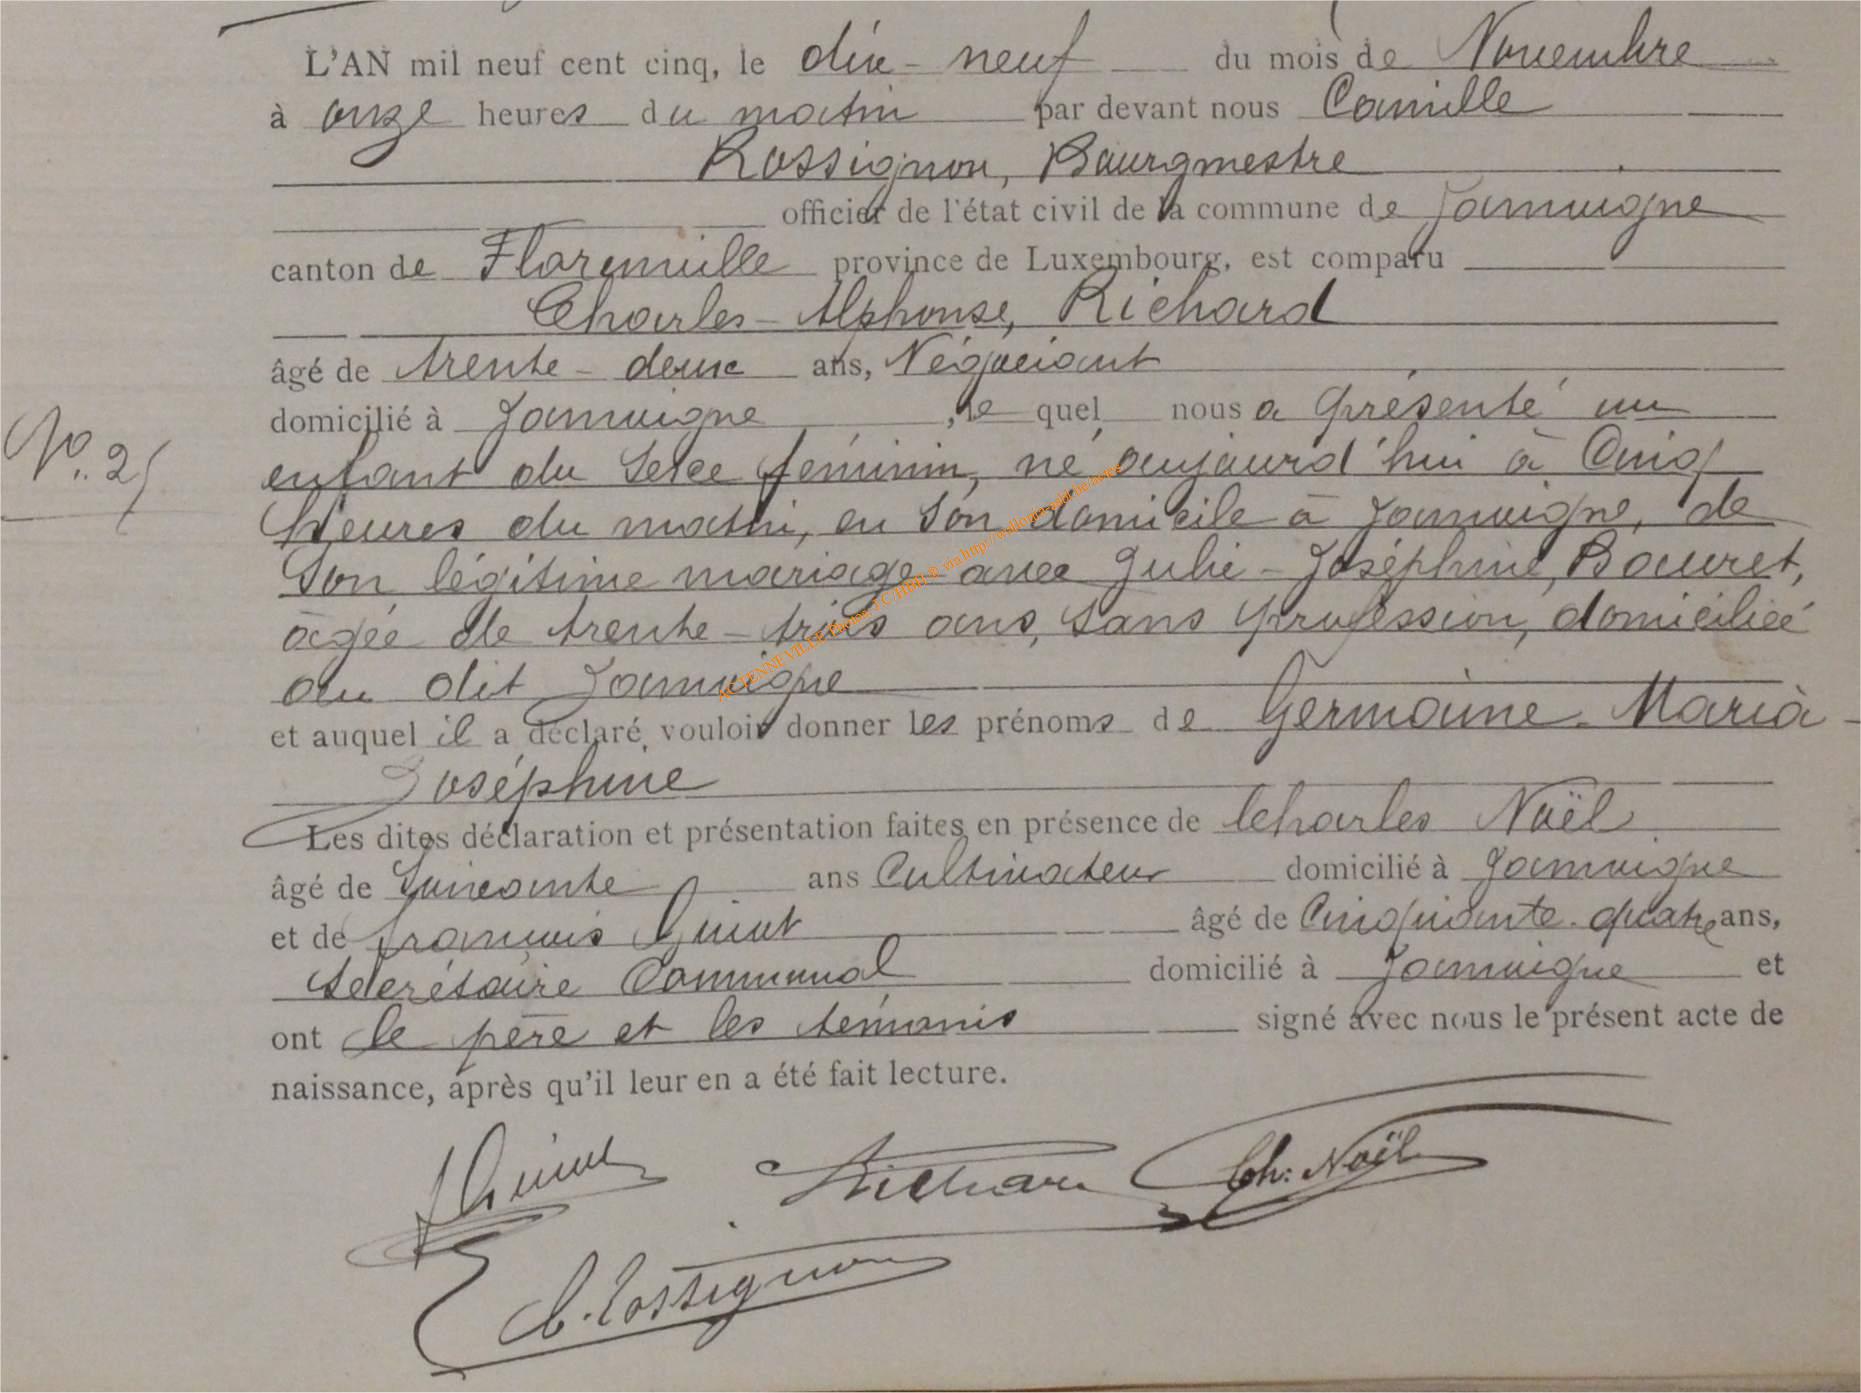 L'AN mil neuf cent cinq, le dix-neuf du mois de Novembre
à onze heures du matin par devant nous Camille
Rossignon, Bourgmestre
officier de l'état civil de la commune de Jamoigne
canton de Florenville province de Luxembourg, est comparu
Charles-Alphonse, Richard
âgé de trente-deux ans, Négociant
domicilié à Jamoigne, le quel nous a présenté un
No. 25
enfant du sexe féminin, né aujourd'hui à Cinq
heures du matin, en son domicile à Jamoigne, de
son légitime mariage avec Julie-Joséphine, Bouvret,
âgée de trente-trois ans, sans profession, domiciliée
au dit Jamoigne
et auquel il a déclaré vouloir donner les prénoms de Germaine-Maria-
Joséphine
Les dites déclaration et présentation faites en présence de Charles Noël
âgé de Soixante ans Cultivateur domicilié à Jamoigne
et de François Guiot âgé de Cinquante-quatre ans,
Secrétaire Communal domicilié à Jamoigne et
ont le père et les témoins signé avec nous le présent acte de
naissance, après qu'il leur en a été fait lecture.
Richard Ch: Noël
C. Rossignon